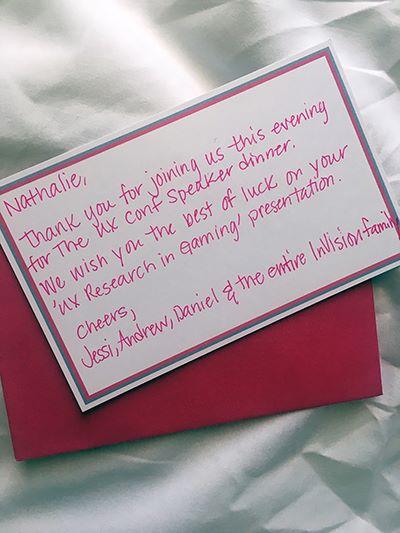 Nathalie,
Thank you for joining us this evening
for The UX Conf Speaker dinner.
We wish you the best of luck on your
'UX Research in Gaming' presentation.
Cheers,
Jessi, Andrew, Daniel & the entire InVision family